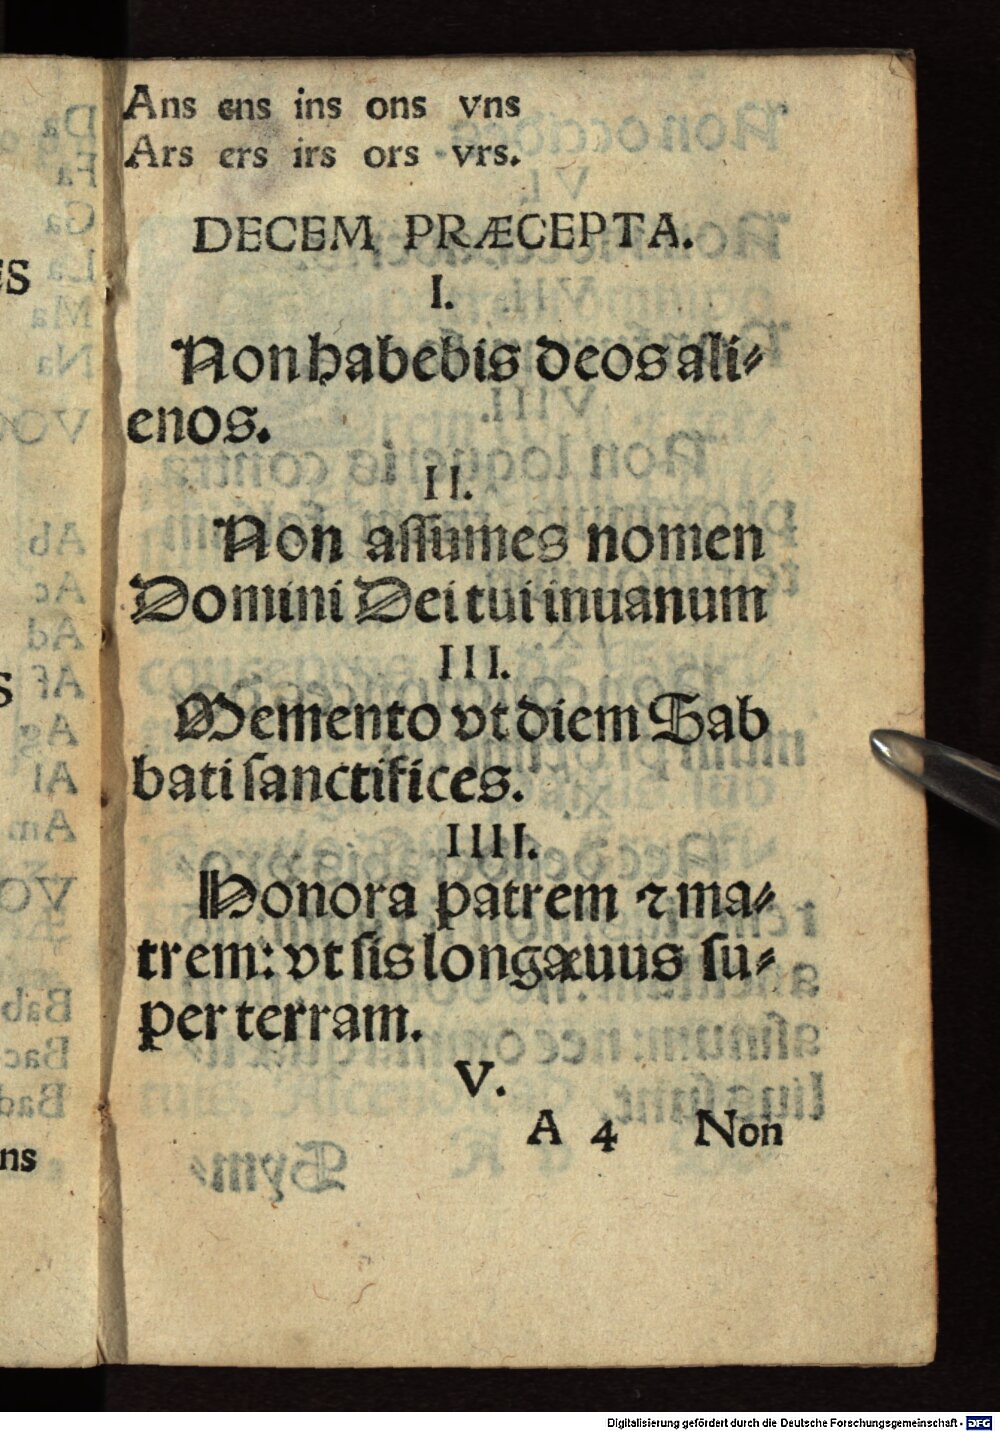 Ans ens ins ons vns
Ars ers irs ors vrs.
DECEM PRÆCEPTA.
I.
Non habebis deos ali⸗
enos.
II.
Non aſſumes nomen
Domini Dei tui inuanum
III.
Memento vt diem Sab
bati ſanctifices.
IIII.
Honora patrem ⁊ ma⸗
trem: vt ſis longæuus ſu⸗
per terram.
V.
A 4 Non
Digitalisierung gefördert durch die Deutsche Forschungsgemeinschaft - DFG